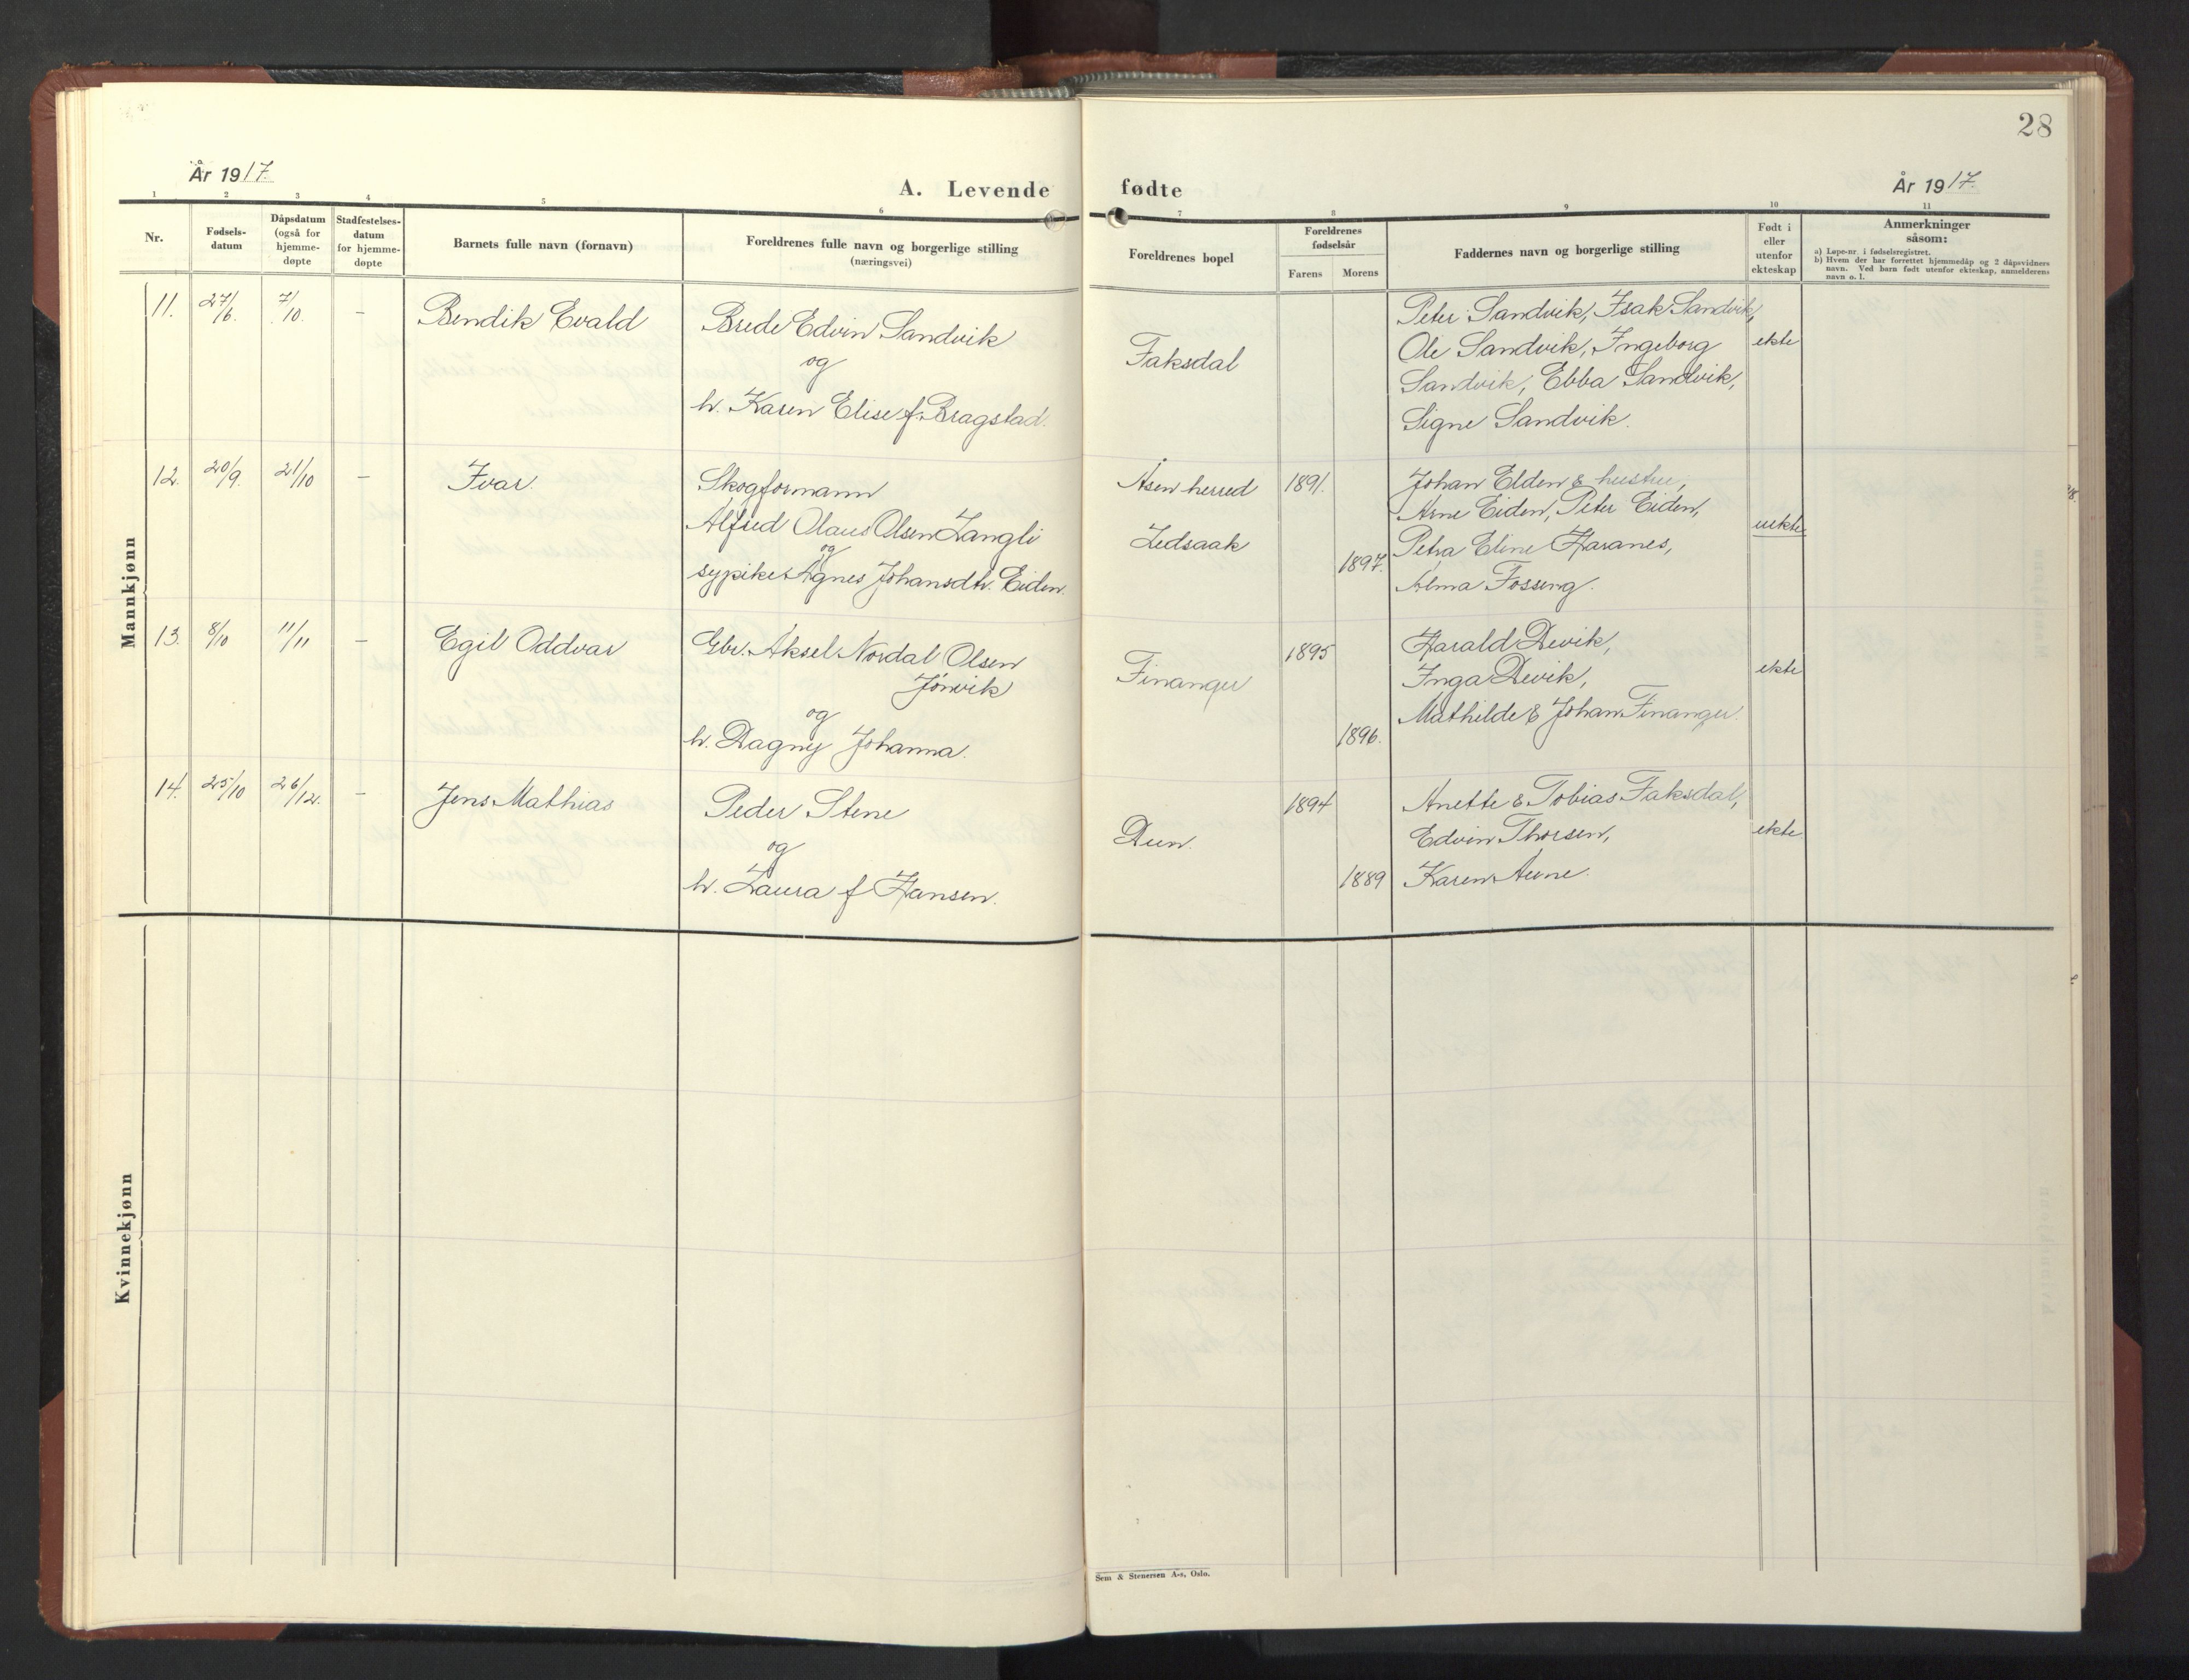 28
År 1917.
A. Levende
fødte
År 1917.
1 2 3 4 5 6 7 8 9 10 11
Nr.
Fødsels-
datum
Dåpsdatum
(også for
hjemme-
døpte
Stadfestelses-
datum
for hjemme-
døpte
Barnets fulle navn (fornavn)
Foreldrenes fulle navn og borgerlige stilling
(næringsvei)
Foreldrenes bopel
Foreldrenes
fødselsår
Farens Morens
Faddernes navn og borgerlige stilling
Født i
eller
utenfor
ekteskap
Anmerkninger
såsom:
a) Løpe-nr. i fødselsregistret.
b) Hvem der har forrettet hjemmedåp og 2 dåpsvidners
navn. Ved barn født utenfor ekteskap, anmelderens
navn o. l.
Mannkjønn
11. 27/6. 7/10. – Bendik Evald
Brede Edvin Sandvik
og
h. Karen Elise f. Bragstad.
Faksdal
Peter Sandvik, Isak Sandvik,
Ole Sandvik, Ingeborg
Sandvik, Ebba Sandvik,
Signe Sandvik.
ekte
12. 20/9. 21/10 – Ivar.
Skogformann
Alfred Olaus Olsen Langli
og
sypike Agnes Johansdtr. Eiden.
Åsen herred
Ledsaak
1891.
1897.
Johan Elden & hustru,
Arne Eiden, Peter Eiden,
Petra Eline Haranes,
Alma Fosseng.
uekte
13. 8/10 11/11 – Egil Oddvar
Gbr. Aksel Nordal Olsen
Jørvik
og
h. Dagny Johanna.
Finanger
1895
1896.
Harald Devik,
Inga Devik,
Mathilde & Johan Finanger.
ekte
14. 25/10 26/12. – Jens Mathias
Peder Stene
og
h. Laura f Hansen.
Dun.
1894
1889
Anette & Tobias Faksdal,
Edvin Thorsen,
Karen Aune.
ekte
Kvinnekjønn
Sem & Stenersen A-s, Oslo.